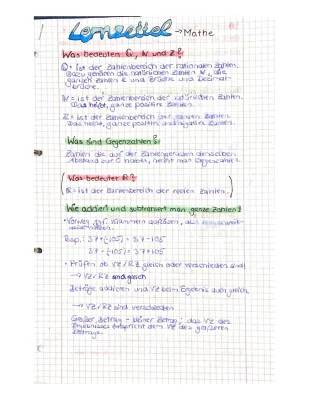 Lernzettel → Mathe
Was bedeuten Q, N und Z?
Q = ist der Zahlenbereich der rationalen Zahlen.
Dazu gehören die natürlichen Zahlen N, die
ganzen Zahlen Z und Brüche und Dezimal-
brüche.
N = ist der Zahlenbereich der natürlichen Zahlen.
Das heißt, ganze positive Zahlen.
Z = ist der Zahlenbereich der ganzen Zahlen.
Das heißt, ganze positive und negative Zahlen.
Was sind Gegenzahlen?
Zahlen die auf der Zahlengeraden denselben
Abstand zur 0 haben, nennt man Gegenzahlen.
Was bedeutet R?
R = ist der Zahlenbereich der reellen Zahlen.
Wie addiert und subtrahiert man ganze Zahlen?
Klammern auflösen,
Bsp.: 37 + (-105) = 37 - 105
37 - (-105) = 37 + 105
• Prüfen ob VZ/RZ gleich oder verschieden sind
→ VZ/RZ sind gleich
Beträge addieren und VZ beim Ergebnis auch gleich
→ VZ/RZ sind verschieden
Großer Betrag - kleiner Betrag; das VZ des
Ergebnisses entspricht dem VZ des größeren
Betrags.